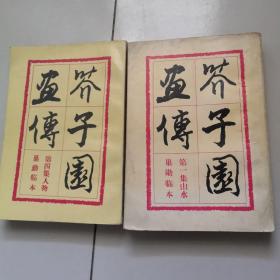 芥子園
畫傳
第四集人物
巢勳臨本
芥子園
畫傳
第一集山水
巢勳臨本